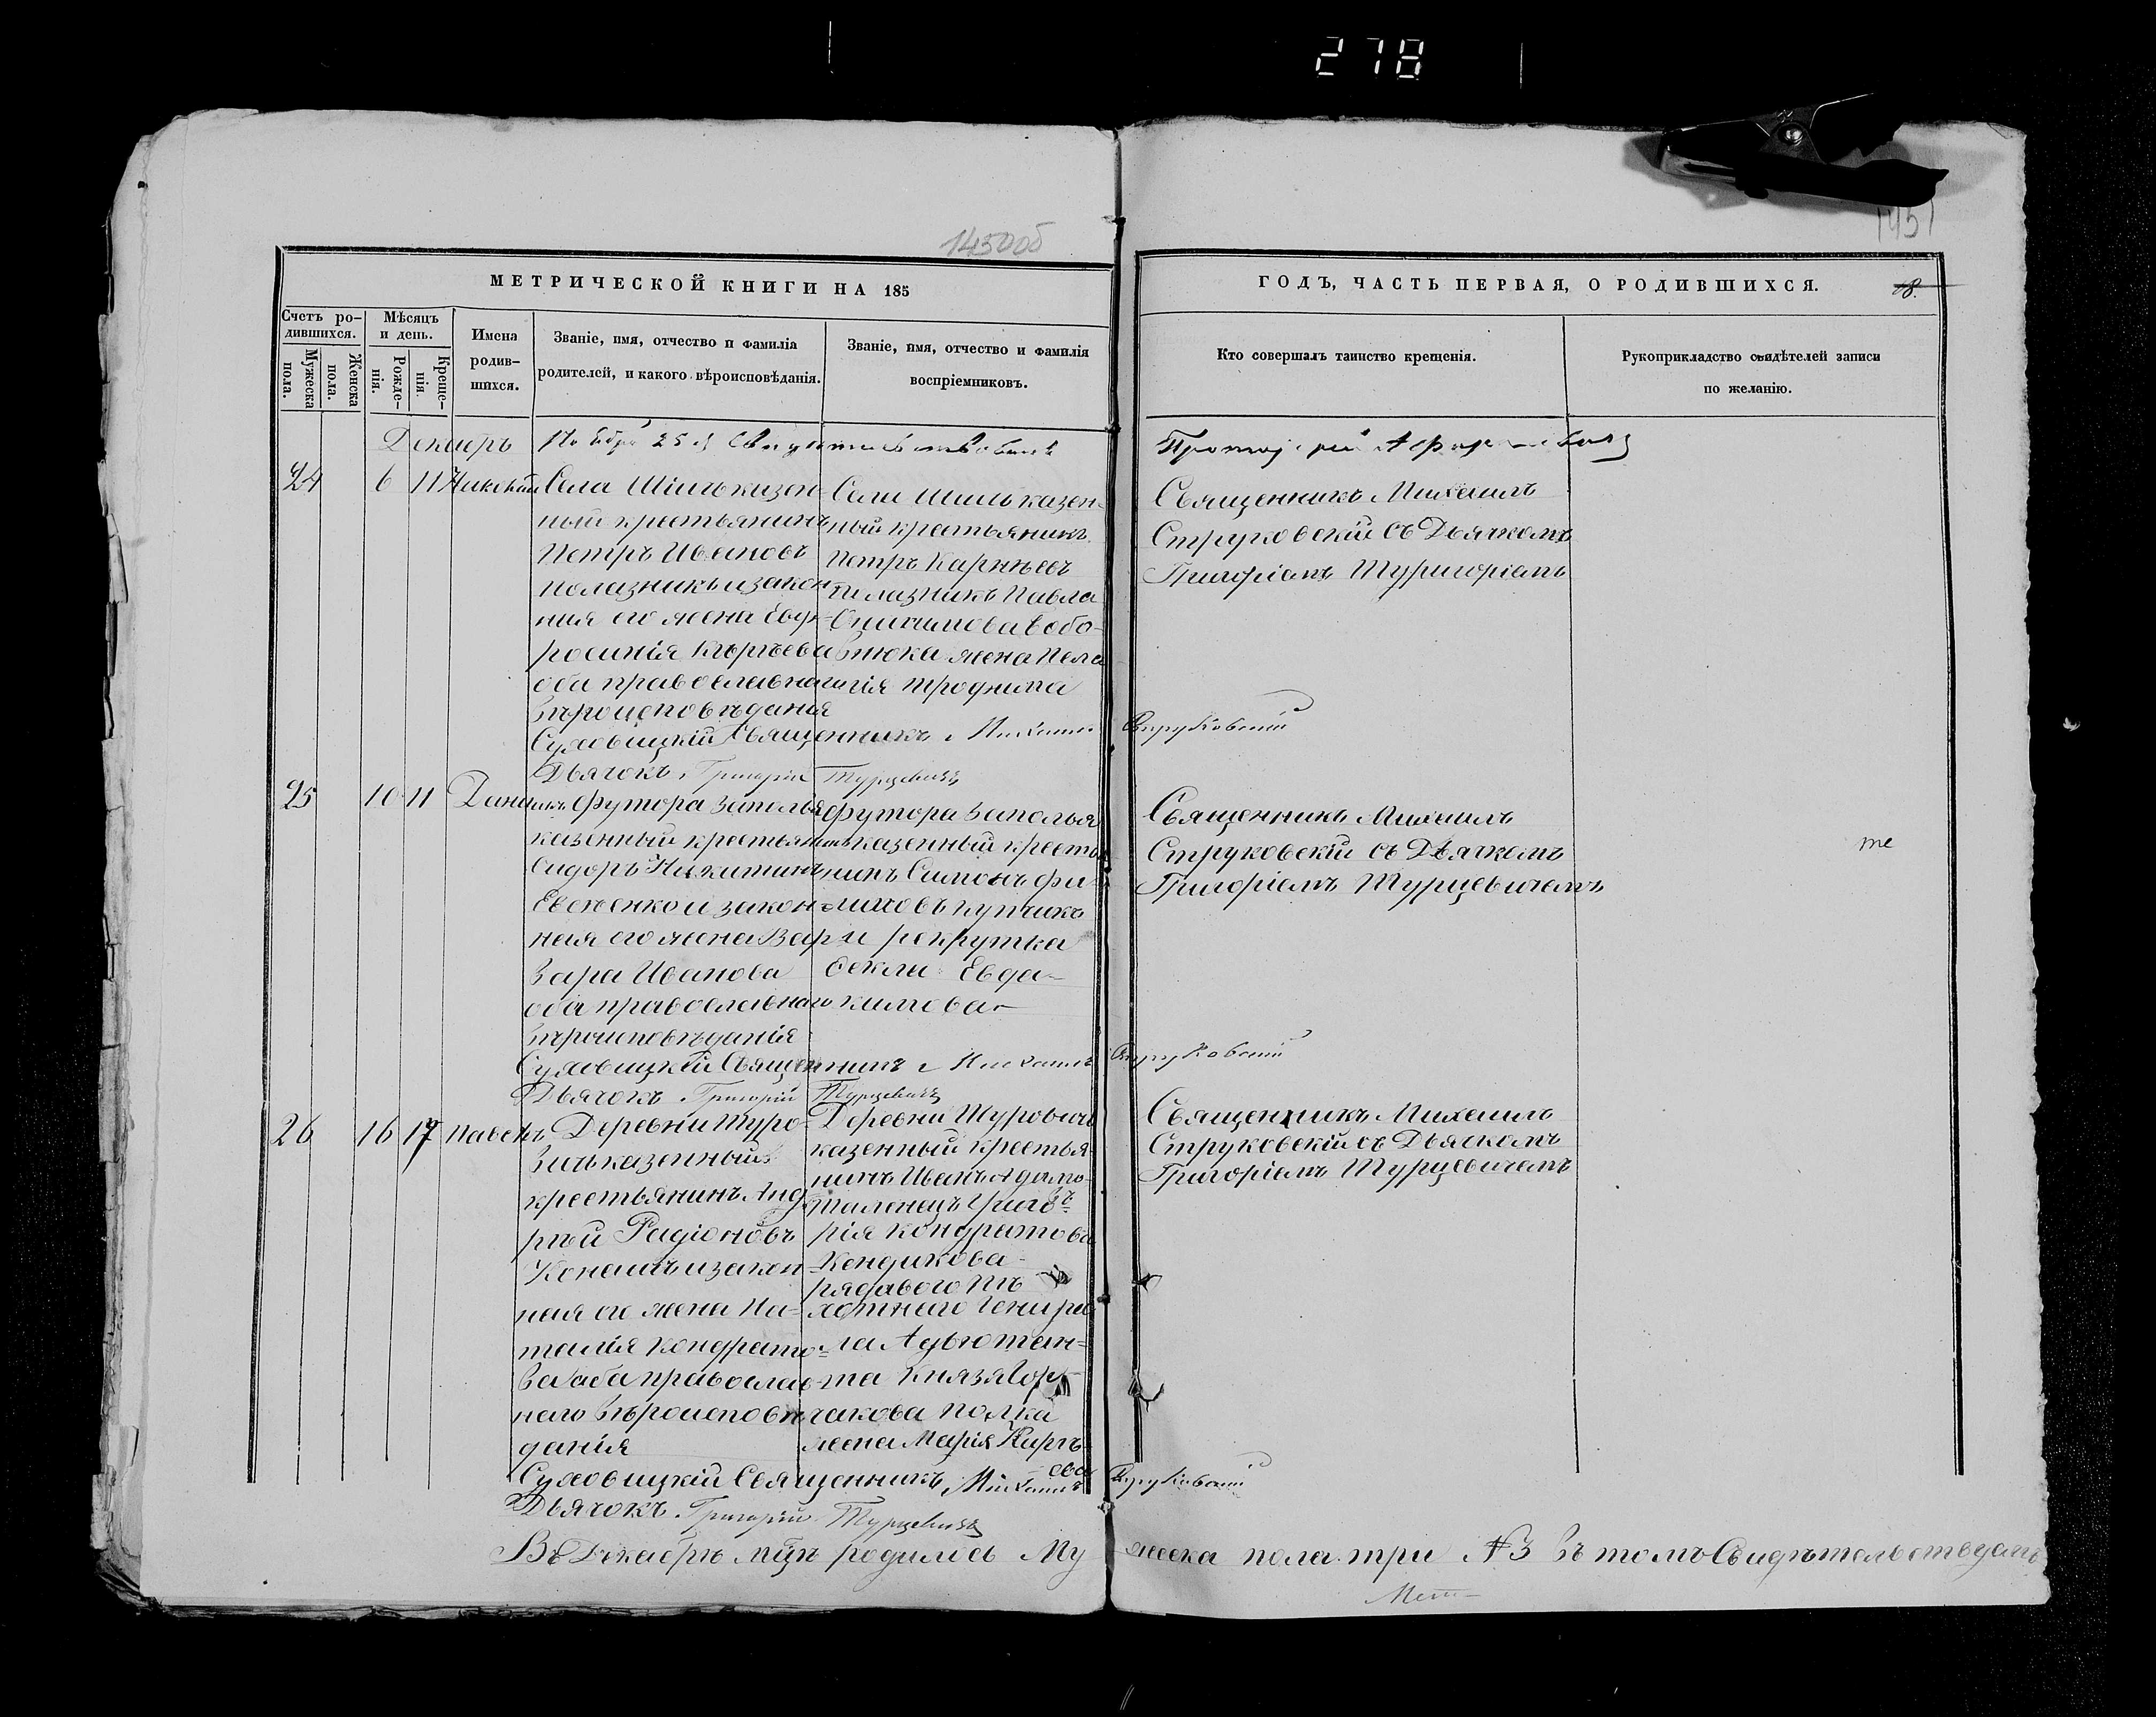 278
1450об
1451
МЕТРИЧЕСКОЙ КНИГИ НА 185
ГОДЪ, ЧАСТЬ ПЕРВАЯ, О РОДИВШИХСЯ.
Счетъ ро-
дившихся.
Мужеска
пола.
Женска
пола.
Мѣсяцъ
и день.
Рожде-
нія.
Креще-
нія.
Имена
родив-
шихся.
Званіе, имя, отчество и фамилія
родителей, и какого вѣроисповѣданія.
Званіе, имя, отчество и фамилія
воспріемниковъ.
Кто совершалъ таинство крещенія.
Рукоприкладство свидѣтелей записи
по желанію.
Декабръ
24 6 11
Села
казен-
ный крестьянинъ
Петръ Ивановъ
Полазникъ и закон
ная его жена Евф-
росинія
оба православнаго
вѣроисповѣданія
Села казен-
ный крестьянинъ
Петръ Карнѣевъ
Полазникъ Павла
жена Пела
гія
Священникъ Михаилъ
Струковскій съ Дьячкомъ
Григоріемъ
Суховицкій Священникъ Михаилъ Струковскій
Дьячокъ Григорій Турцевичъ
25 10 11 Данилъ
футора Заполья
казенный крестьянинъ
Сидоръ Никитинъ
и закон
ная его жена Вар
вара Иванова
оба православнаго
вѣроисповѣданія
футора Заполья
казенный кресть
нинъ Симонъ Фи-
липовъ Купчикъ
и рекрутка
Фекла Евдо-
кимова
Священникъ Михаилъ
Струковскій съ Дьячкомъ
Григоріемъ Турцевичемъ
те
Суховицкій Священникъ Михаилъ Струковскій
Дьячокъ Григорій Турцевичъ
26 16 17 Павелъ
Деревни Туро-
вичь казенный
крестьянинъ Анд
рей Радіоновъ
и закон
ная его жена На-
талія Кондрато-
ва оба православ-
наго вѣроисповѣ-
данія
Деревни Туровичь
казенный крестья
нинъ Иванъ Адамо
въ
Григо-
рія Кондратова
рядавого пѣ
хотнаго Генира
ла Адьютан-
та Князя Гор-
чакова полка
жена Марія Кирѣ
ева
Священникъ Михаилъ
Струковскій съ Дьячкомъ
Григоріемъ Турцевичемъ
Суховицкій Священникъ Михаилъ Струковскій
Дьячокъ Григорій Турцевичъ
Въ Декабрѣ мцѣ родилось Му жеска пола три №3 въ томъ